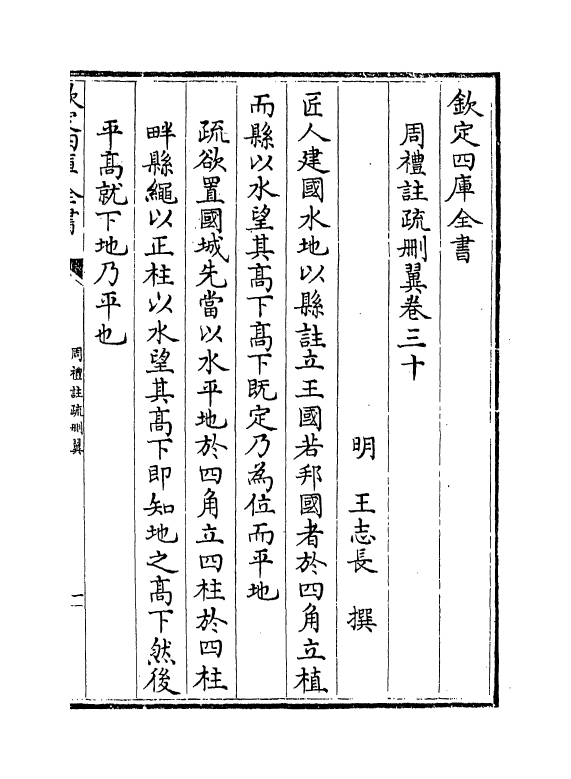 欽定四庫全書
周禮註疏刪翼卷三十
明 王志長 撰
匠人建國水地以縣註立王國若邦國者於四角立植
而縣以水望其髙下髙下既定乃為位而平地
疏欲置國城先當以水平地於四角立四柱於四柱
畔縣繩以正柱以水望其髙下即知地之髙下然後
平髙就下地乃平也
欽定四庫全書
周禮註疏刪翼
一